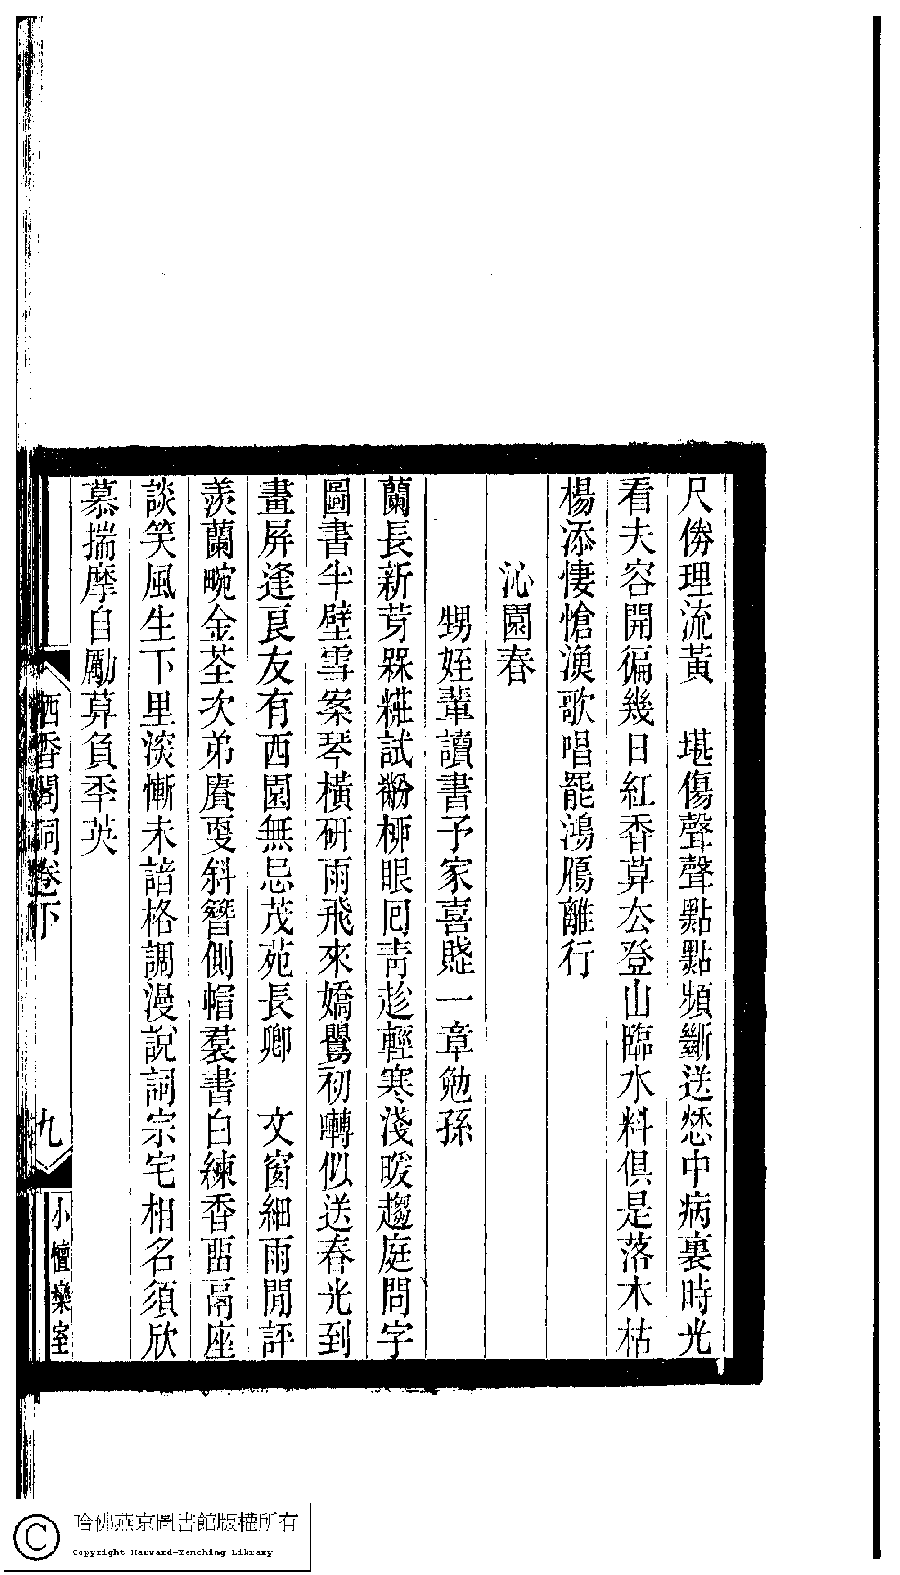 尺傍理流黃　堪傷聲聲點點頻斷送愁中病裏時光
看夫容開徧幾日紅香算厺登山臨水料俱是落木枯
楊添悽愴漁歌唱罷鴻鴈離行
沁園春
甥姪輩讀書予家喜賦一章勉孫
蘭長新芽槑糚試粉桺眼回靑趁輕寒淺暖趨庭問字
圖書半壁雪案琴橫硏雨飛來嬌鸎初囀似送春光到
畫屏逢良友有西園無忌茂苑長卿　文窗細雨閒評
羨蘭畹金荃次弟賡㪅斜簪側帽羣書白練香畱鬲座
談笑風生下里淡慚未諳格調漫說詞宗宅相名須欣
慕揣摩自勵算負秊英
栖香閣詞卷下
九
小檀欒室
哈佛燕京圖書館版權所有
Copyright Harvard-Yenching Library